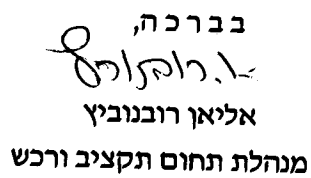 בברכה,
אליאן רובנוביץ
מנהלת תחום תקציב ורכש